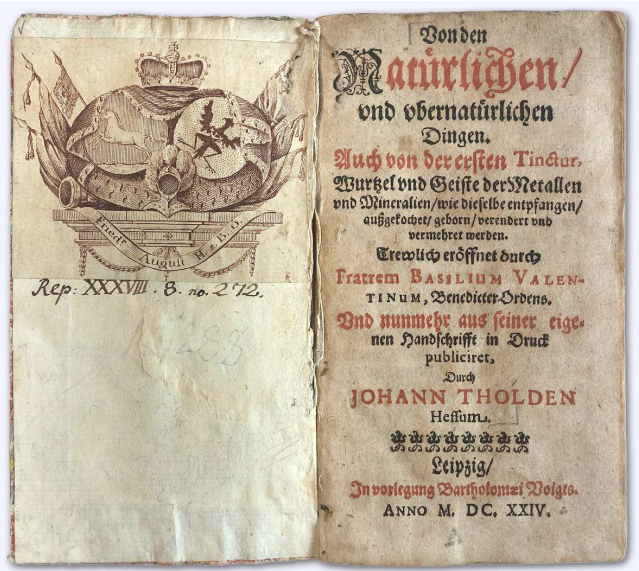 Friedr. August H. z. B. O.
Rep: XXXVIII. 8. no. 272.
288
Von den
Natürlichen/
vnd vbernatürlichen
Dingen.
Auch von der ersten Tinctur,
Wurtzel vnd Geiste der Metallen
vnd Mineralien/ wie dieselbe entpfangen/
außgekochet/ geborn/ verendert vnd
vermehret werden.
Trewlich eröffnet durch
Fratrem BASILIUM VALEN-
TINUM, Benedicter-Ordens.
Vnd nunmehr aus seiner eige-
nen Handschrifft in Druck
publiciret,
Durch
JOHANN THOLDEN
Hessum.
Leipzig/
In vorlegung Bartholomæi Voigts.
ANNO M. DC. XXIV.